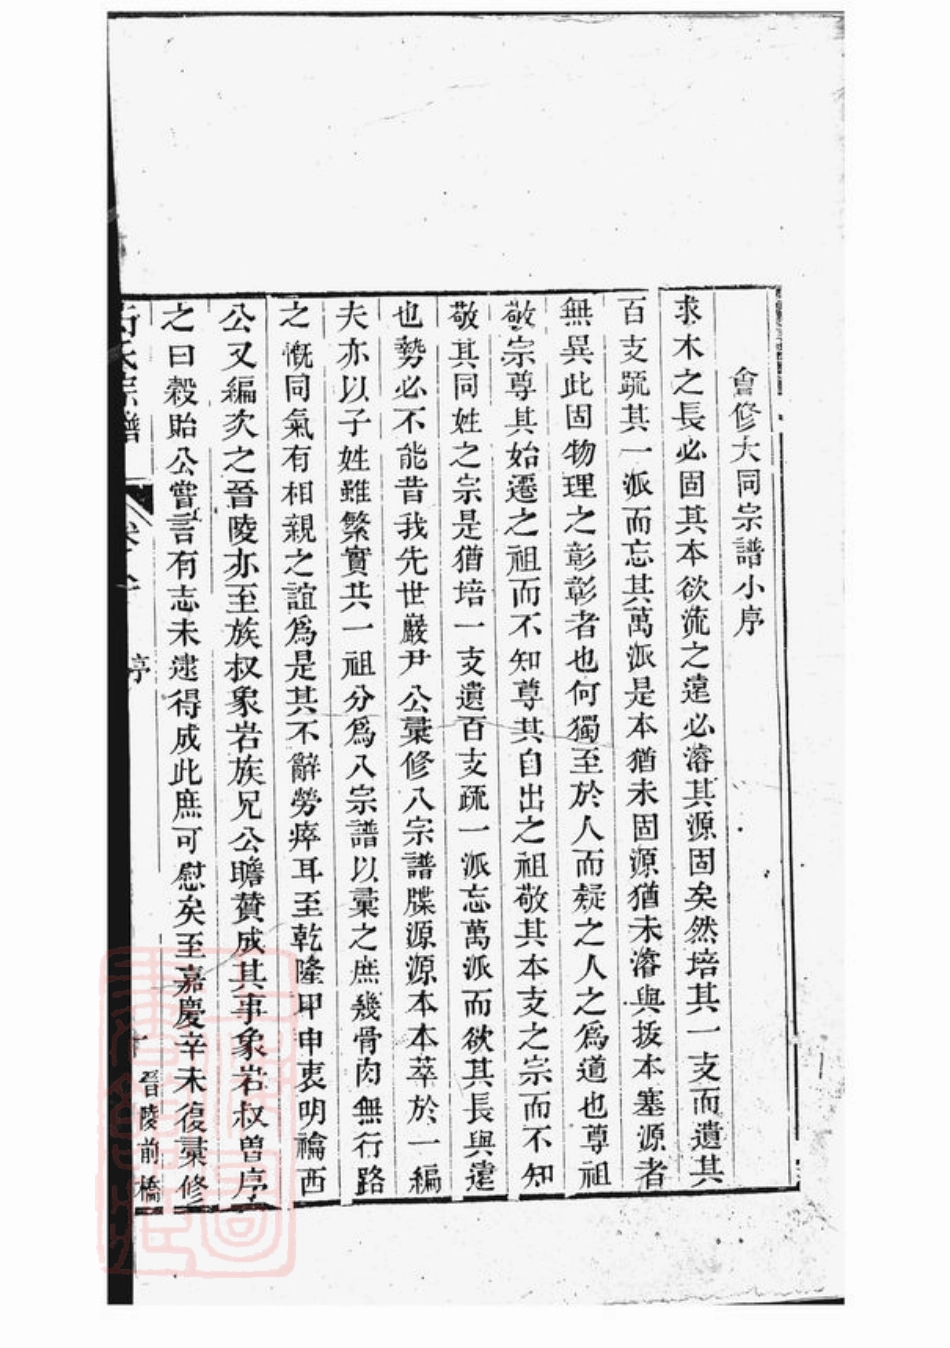 會修大同宗譜小序
求木之長必固其本欲流之遠必濬其源固矣然培其一支而遺其
百支疏其一派而忘其萬派是本猶未固源猶未濬與拔本塞源者
無異此固物理之彰彰者也何獨至於人而疑之人之爲道也尊祖
敬宗尊其始遷之祖而不知尊其自出之祖敬其本支之宗而不知
敬其同姓之宗是猶培一支遺百支疏一派忘萬派而欲其長與遠
也勢必不能昔我先世巖尹公彙修八宗譜牒源源本本萃於一編
夫亦以子姓雖繁實共一祖分爲八宗譜以彙之庶幾骨肉無行路
之慨同氣有相親之誼爲是其不辭勞瘁耳至乾隆甲申衷明禴西
公又編次之晉陵亦至族叔象岩族兄公瞻贊成其事象岩叔曾序
之曰穀貽公嘗言有志未逮得成此庶可慰矣至嘉慶辛未復彙修
氏宗譜
序
晉陵前橋